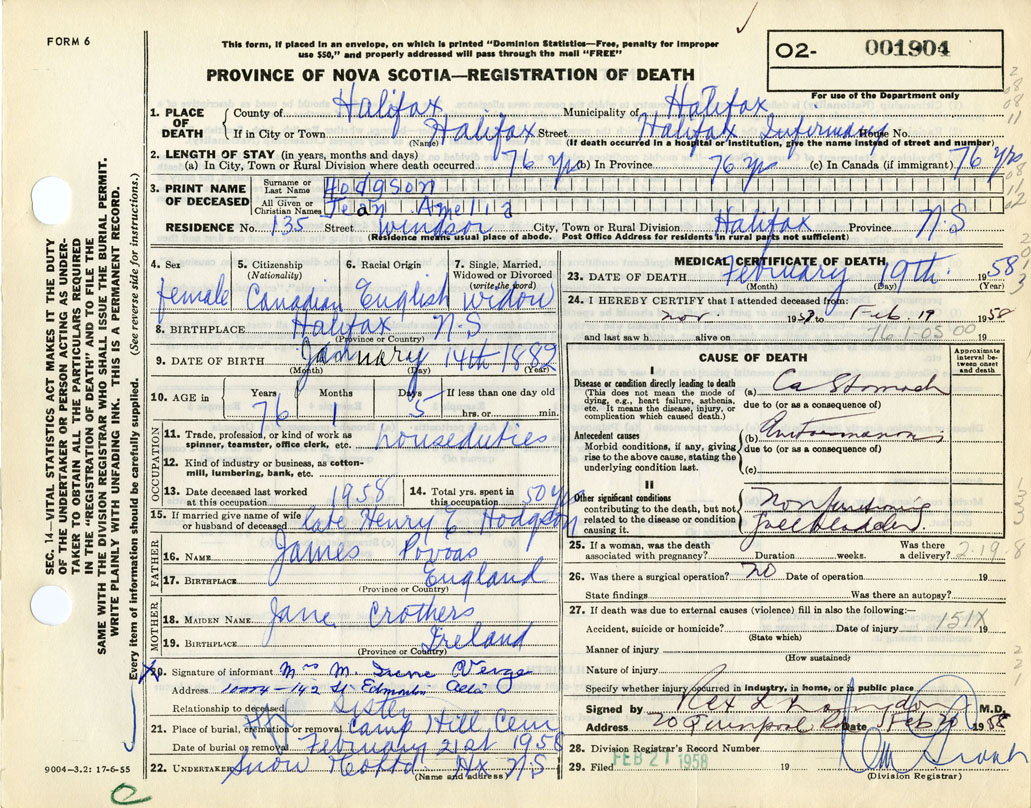 FORM 6
This form, if placed in an envelope, on which is printed "Dominion Statistics—Free, penalty for improper
use $50," and properly addressed will pass through the mail "FREE"
O2- 001904
For use of the Department only
PROVINCE OF NOVA SCOTIA—REGISTRATION OF DEATH
SEC. 14—VITAL STATISTICS ACT MAKES IT THE DUTY
OF THE UNDERTAKER OR PERSON ACTING AS UNDER-
TAKER TO OBTAIN ALL THE PARTICULARS REQUIRED
IN THE "REGISTRATION OF DEATH" AND TO FILE THE
SAME WITH THE DIVISION REGISTRAR WHO SHALL ISSUE THE BURIAL PERMIT.
WRITE PLAINLY WITH UNFADING INK. THIS IS A PERMANENT RECORD.
Every item of information should be carefully supplied. (See reverse side for instructions.)
1. PLACE OF DEATH
County of Halifax Municipality of Halifax
If in City or Town Halifax Street Halifax Infirmary House No.
(Name) (If death occurred in a hospital or institution, give the name instead of street and number)
2. LENGTH OF STAY (in years, months and days)
(a) In City, Town or Rural Division where death occurred 76 yrs (b) In Province 76 yrs (c) In Canada (if immigrant) 76 yrs
3. PRINT NAME OF DECEASED
Surname or Last Name Hodgson
All Given or Christian Names Jean Amelia
RESIDENCE No. 135 Street Windsor City, Town or Rural Division Halifax Province N.S
(Residence means usual place of abode. Post Office Address for residents in rural parts not sufficient)
4. Sex female
5. Citizenship (Nationality) Canadian
6. Racial Origin English
7. Single, Married, Widowed or Divorced (write the word) widow
8. BIRTHPLACE Halifax N-S
(Province or Country)
9. DATE OF BIRTH January 14th 1882
(Month) (Day) (Year)
10. AGE in Years 76 Months 1 Days 5 If less than one day
hrs. or min.
OCCUPATION
11. Trade, profession, or kind of work as spinner, teamster, office clerk, etc. houseduties
12. Kind of industry or business, as cotton-mill, lumbering, bank, etc.
13. Date deceased last worked at this occupation 1958
14. Total yrs. spent in this occupation 50 yrs
15. If married give name of wife or husband of deceased late Henry E Hodgson
FATHER
16. NAME James Povoas
17. BIRTHPLACE England
(Province or Country)
MOTHER
18. MAIDEN NAME Jane Crothers
19. BIRTHPLACE Ireland
(Province or Country)
20. Signature of informant Mrs M. Irene Verge
Address 10004-142 St. Edmonton Alta
Relationship to deceased Sister
21. Place of burial, cremation or removal Camp Hill Cem
Date of burial or removal February 21st 1958
22. UNDERTAKER Snow Hx N.S
(Name and address)
9004-3.2: 17-6-55
MEDICAL CERTIFICATE OF DEATH
23. DATE OF DEATH February 19th 1958
(Month) (Day) (Year)
24. I HEREBY CERTIFY that I attended deceased from:
Nov. 195 to Feb 19 1958
and last saw h alive on 761-05 00
CAUSE OF DEATH
Approximate interval between onset and death
I
Disease or condition directly leading to death
(This does not mean the mode of dying, e.g., heart failure, asthenia, etc. It means the disease, injury, or complication which caused death.)
(a) Ca Stomach
due to (or as a consequence of)
Antecedent causes
Morbid conditions, if any, giving rise to the above cause, stating the underlying condition last.
(b)
due to (or as a consequence of)
(c)
II
Other significant conditions
contributing to the death, but not related to the disease or condition causing it.
25. If a woman, was the death associated with pregnancy? Duration weeks. Was there a delivery? 2-19-8
26. Was there a surgical operation? NO Date of operation 19
State findings Was there an autopsy?
27. If death was due to external causes (violence) fill in also the following:—
Accident, suicide or homicide? Date of injury 19
151X
(State which)
Manner of injury
(How sustained)
Nature of injury
Specify whether injury occurred in industry, in home, or in public place
Signed by Rex M.D.
Address 20 Quinpool Rd Date Feb 20 1958
28. Division Registrar's Record Number
29. Filed FEB 21 1958 19
(Division Registrar)